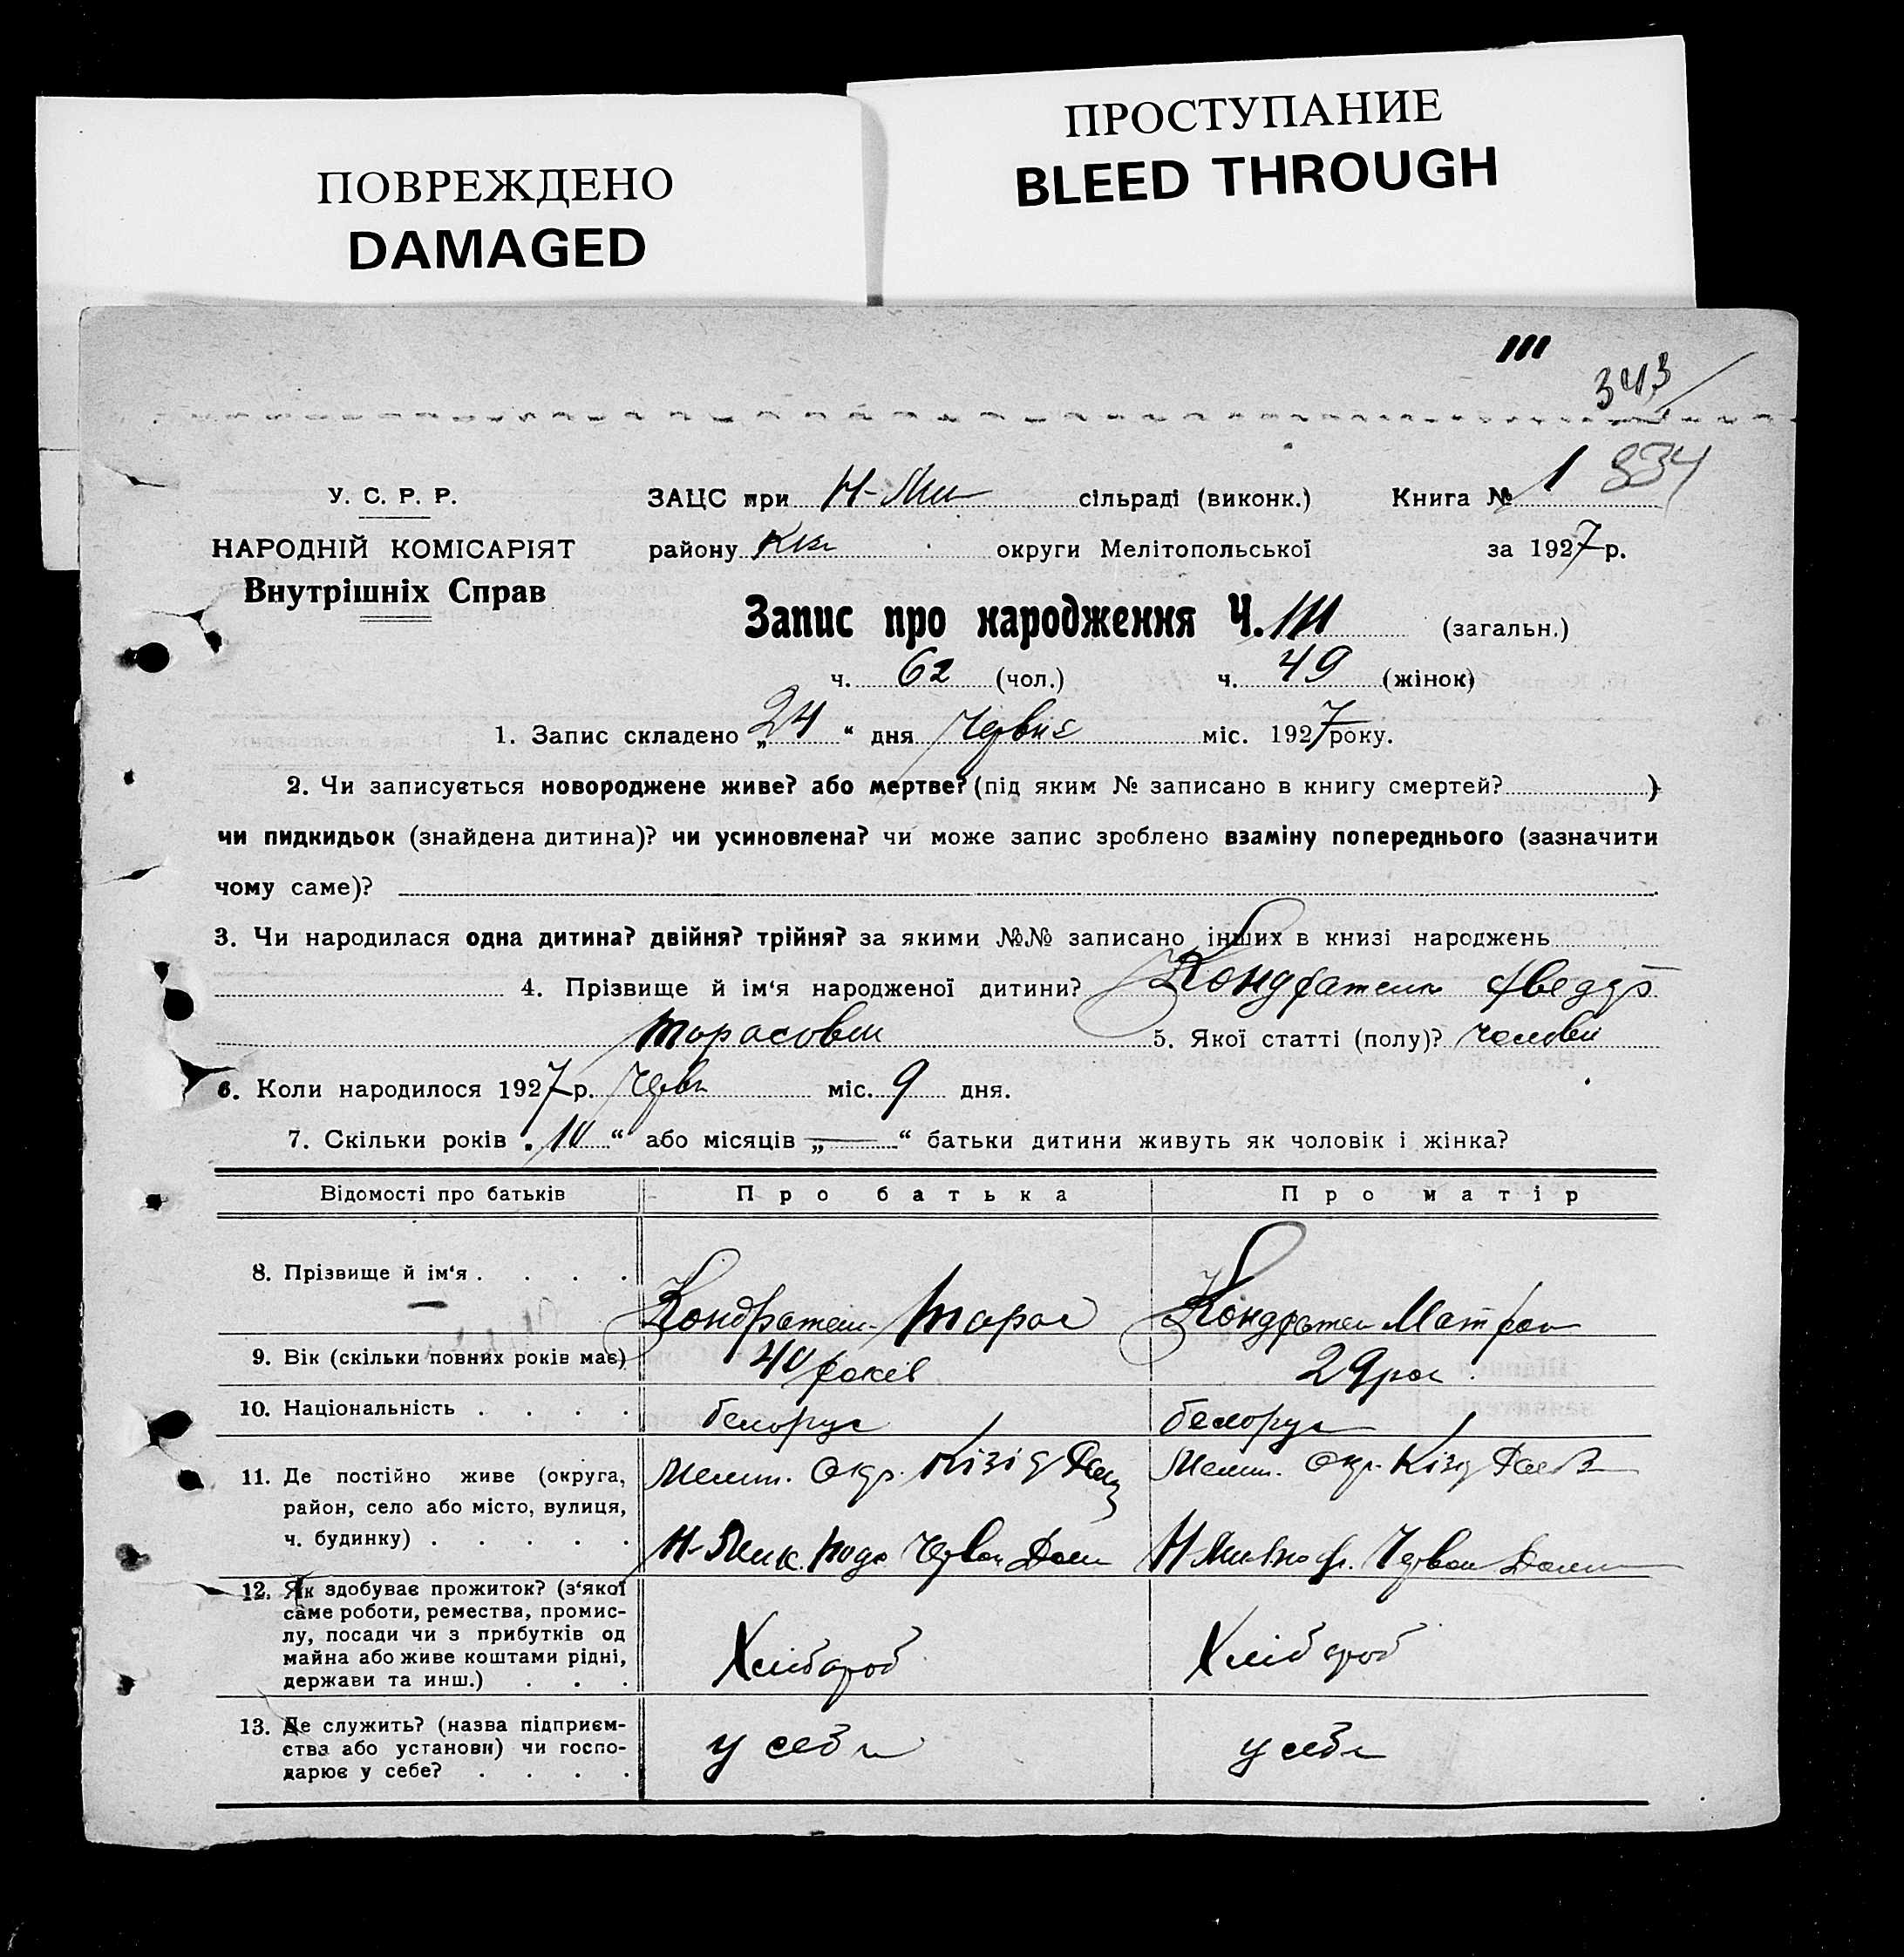 ПОВРЕЖДЕНО
DAMAGED
ПРОСТУПАНИЕ
BLEED THROUGH
111
343
334
У. С. Р. Р.
НАРОДНІЙ КОМІСАРІЯТ
Внутрішніх Справ
ЗАЦС при Н-Мик сільраді (виконк.) Книга № 1
району округи Мелітопольської за 1927 р.
Запис про народження Ч. 111 (загальн.)
ч. 62 (чол.) ч. 49 (жінок)
1. Запис складено „24“ дня Червня міс. 1927 року.
2. Чи записується новороджене живе? або мертве? (під яким № записано в книгу смертей? )
чи пидкидьок (знайдена дитина)? чи усиновлена? чи може запис зроблено взаміну попереднього (зазначити
чому саме)?
3. Чи народилася одна дитина? двійня? трійня? за якими №№ записано інших в книзі народжень
4. Прізвище й ім‘я народженої дитини? Кондратенк
5. Якої статті (полу)?
6. Коли народилося 1927 р. Червн міс. 9 дня.
7. Скільки років „10“ або місяців „—“ батьки дитини живуть як чоловік і жінка?
Відомості про батьків Про батька Про матір
8. Прізвище й ім‘я . . . . Кондратен Тарас Кондратен Матрон
9. Вік (скільки повних років має) 40 років 29 рок
10. Національність . . . . белорус белорус
11. Де постійно живе (округа, Мелит. Окр. Кізід Мелит. Окр. Кізід
район, село або місто, вулиця,
ч. будинку) . . . . . Н-Мик. Червон Доли Червон Доли
12. Як здобуває прожиток? (з‘якої
саме роботи, ремества, промис-
лу, посади чи з прибутків од
майна або живе коштами рідні, Хлібороб Хлібороб
держави та инш.) . . .
13. Де служить? (назва підприєм-
ства або установи) чи госпо- у себе у себе
дарює у себе? . . . .